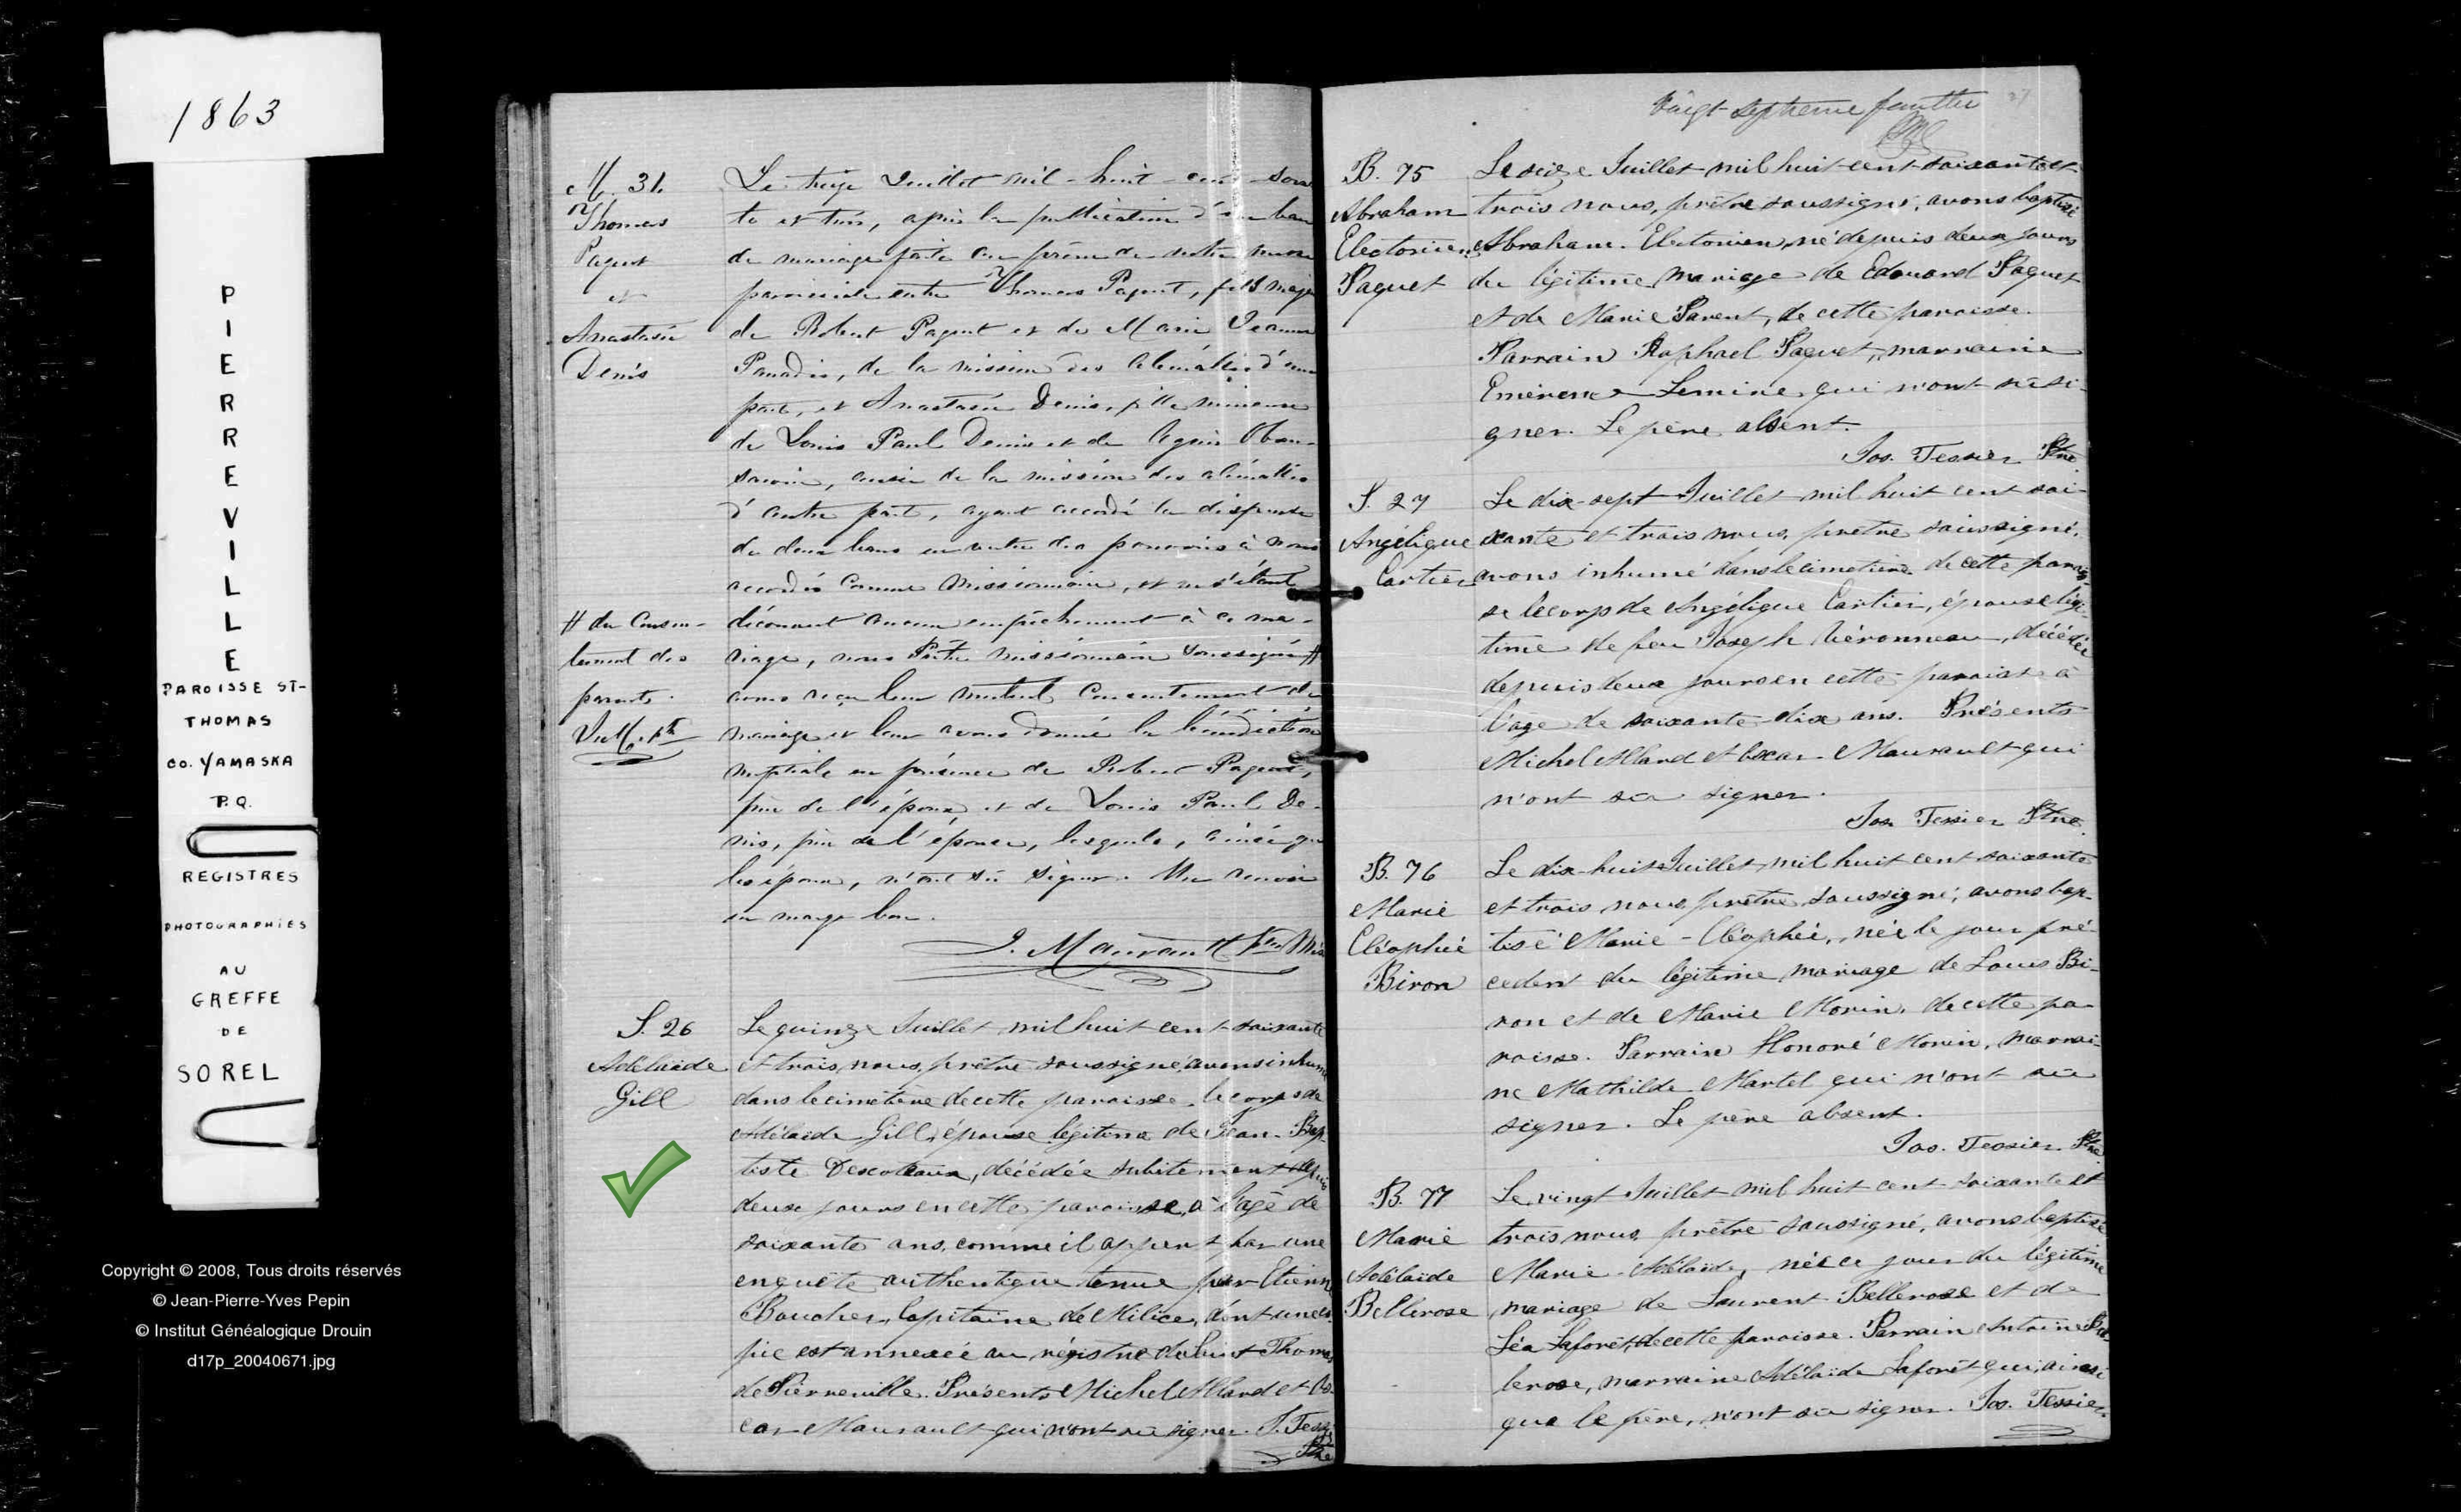 1863
PIERREVILLE
PAROISSE ST-
THOMAS
CO. YAMASKA
P.Q.
REGISTRES
PHOTOGRAPHIES
AU
GREFFE
DE
SOREL
Copyright © 2008, Tous droits réservés
© Jean-Pierre-Yves Pepin
© Institut Généalogique Drouin
d17p_20040671.jpg
M. 31.
Thomas
et
Anastasie
Denis
Le treize Juillet mil-huit-cent-soix
te et trois, après la publication d'un ban
de mariage faite au prône de notre messe
paroissiale entre Thomas
de Robert et de Marie Jeanne
de la mission des d'une
part, et Anastasie Denis, fille mineure
de Louis Paul Denis et de
aussi de la mission des
d'autre part, ayant accordé la dispense
de deux bans en vertu des pouvoirs à nous
accordés comme missionnaire, et ne s'étant
# du consen-
tement des
parents.
découvert aucun empêchement à ce ma-
riage, nous Prêtre missionnaire soussigné #
avons reçu leur mutuel consentement de
mariage et leur avons donné la bénédiction
nuptiale en présence de Robert
père de l'époux, et de Louis Paul De-
nis, père de l'épouse, lesquels, ainsi que
les époux, n'ont su signer. Un renvoi
en marge bon.
J. Maurault Ptre Mis
S. 26
Adélaïde
Gill
Le quinze Juillet mil huit cent soixante
et trois, nous, prêtre soussigné, avons inhumé
dans le cimetière de cette paroisse, le corps de
Adélaïde Gill, épouse légitime de Jean-Bap-
tiste Descoteaux, décédée subitement depuis
deux jours en cette paroisse, à l'âge de
soixante ans, comme il appert par une
enquête authentique tenue par Etienne
Boucher, Capitaine de Milice, dont une co-
pie est annexée au régistre de Saint Thomas
de Pierreville. Présents Michel Allard et Os-
car Maurault qui n'ont su signer. J. Tessier
Ptre
Vingt-septième feuillet
27
B. 75
Abraham
Electorien
Paquet
Le seize Juillet mil huit cent soixante et
trois nous, prêtre soussigné, avons baptisé
Abraham Electorien, né depuis deux jours
du légitime mariage de Edouard Paquet
et de Marie Parent, de cette paroisse.
Parrain Raphael Paquet, marraine
Emérence Lemire qui n'ont su si-
gner. Le père absent.
Jos. Tessier Ptre
S. 27
Angélique
Cartier
Le dix-sept Juillet mil huit cent soi-
xante et trois nous, prêtre soussigné,
avons inhumé dans le cimetière de cette parois-
se le corps de Angélique Cartier, épouse légi-
time de feu Joseph Véronneau, décédée
depuis deux jours en cette paroisse à
l'âge de soixante-dix ans. Présents
Michel Allard et Oscar Maurault qui
n'ont su signer.
Jos. Tessier Ptre
B. 76
Marie
Cléophée
Biron
Le dix-huit Juillet mil huit cent soixante
et trois nous, prêtre soussigné, avons bap-
tisé Marie-Cléophée, née le jour pré
cedent du légitime mariage de Louis Bi-
ron et de Marie Morin, de cette pa-
roisse. Parrain Honoré Morin, marrai-
ne Mathilde Martel qui n'ont su
signer. Le père absent.
Jos. Tessier Ptre
B. 77
Marie
Adélaïde
Bellerose
Le vingt Juillet mil huit cent soixante et
trois nous, prêtre soussigné, avons baptisé
Marie-Adélaïde, née ce jour du légitime
mariage de Laurent Bellerose et de
Léa Laforêt, de cette paroisse. Parrain Antoine Bel-
lerose, marraine Adélaïde Laforêt qui, ainsi
que le père, n'ont su signer. Jos. Tessier